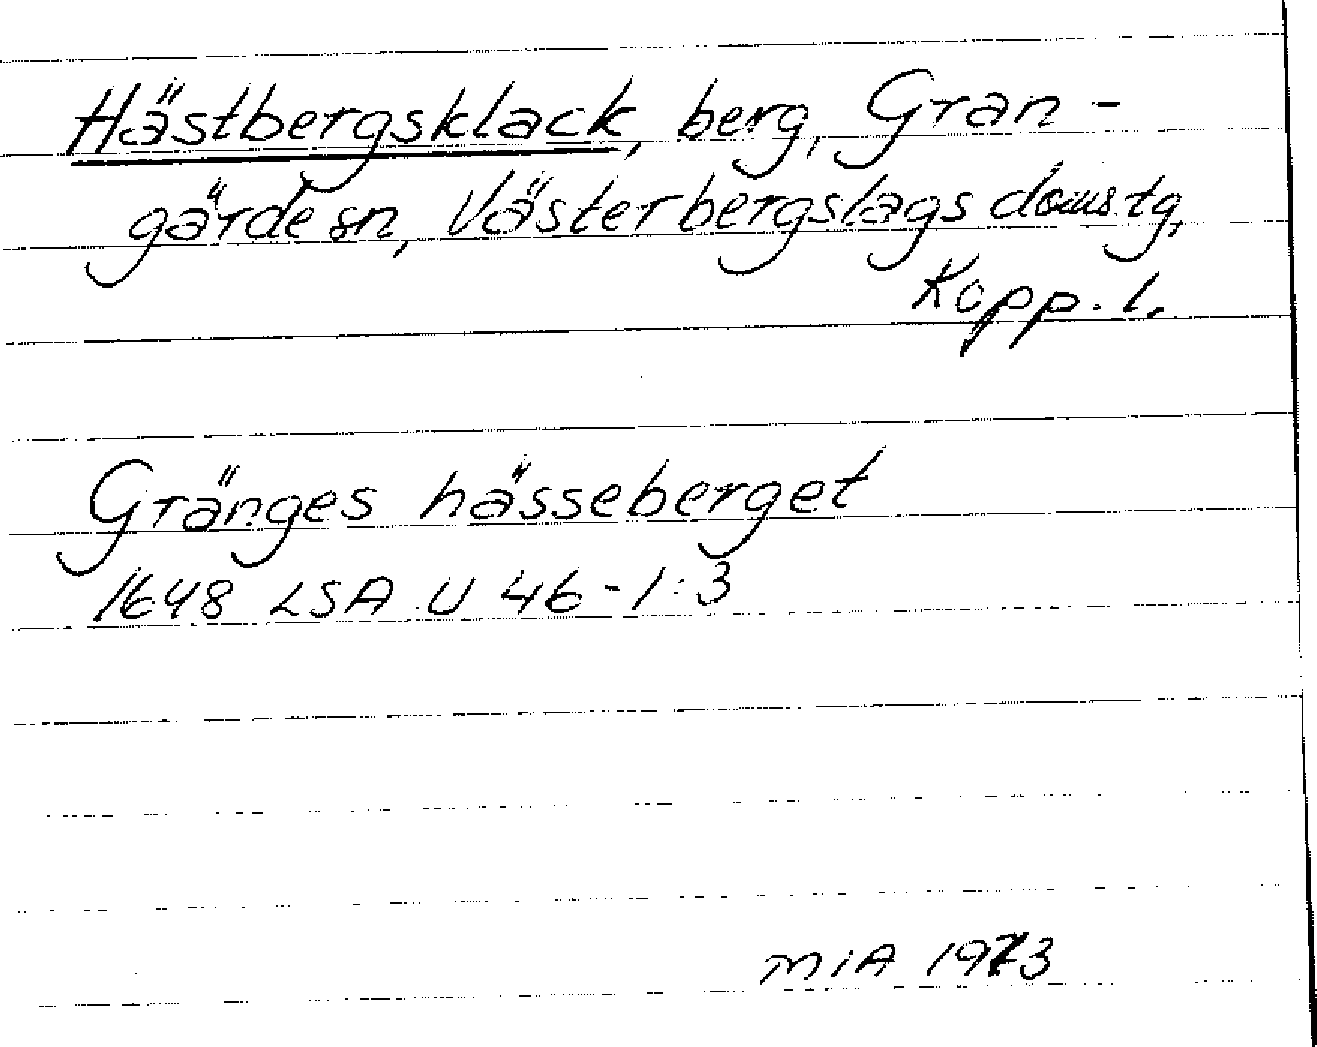 Hästbergsklack, berg, Gran-
gärde sn, Västerbergslags doms.tg,
Kopp. l.
Gränges hässeberget
1648 LSA U 46-1:3
MIA 1973